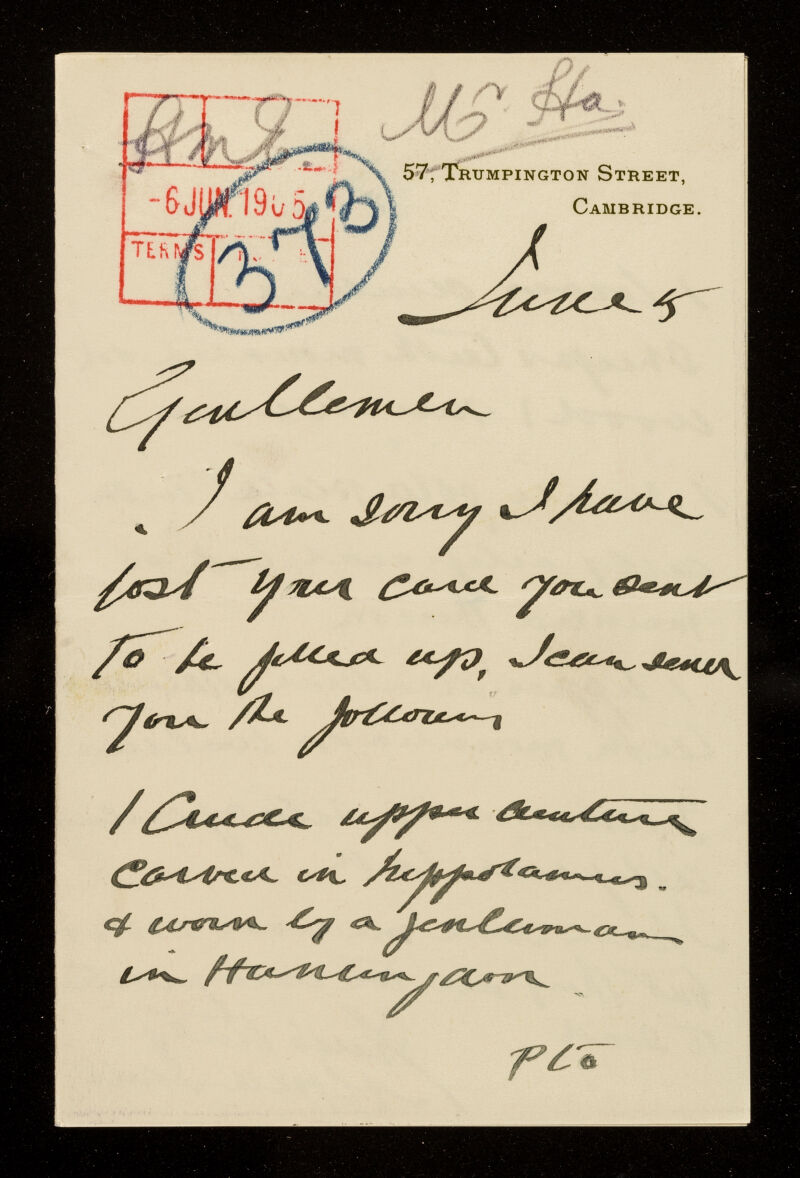 Mr. Ha.
HMS.
57, TRUMPINGTON STREET,
CAMBRIDGE.
-6 JUN. 1905
TERMS
373
June 5
Gentlemen
I am sorry I have
lost your card you sent
to be filled up, I can send
you the following
1 Crude upper denture
carved in hippotamus.
& worn by a gentleman
in Huntingdon.
P T O